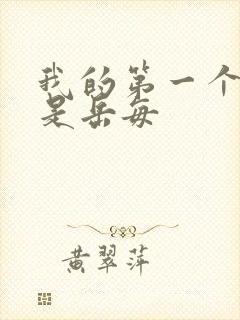 我的第一个
是岳每
黄翠萍